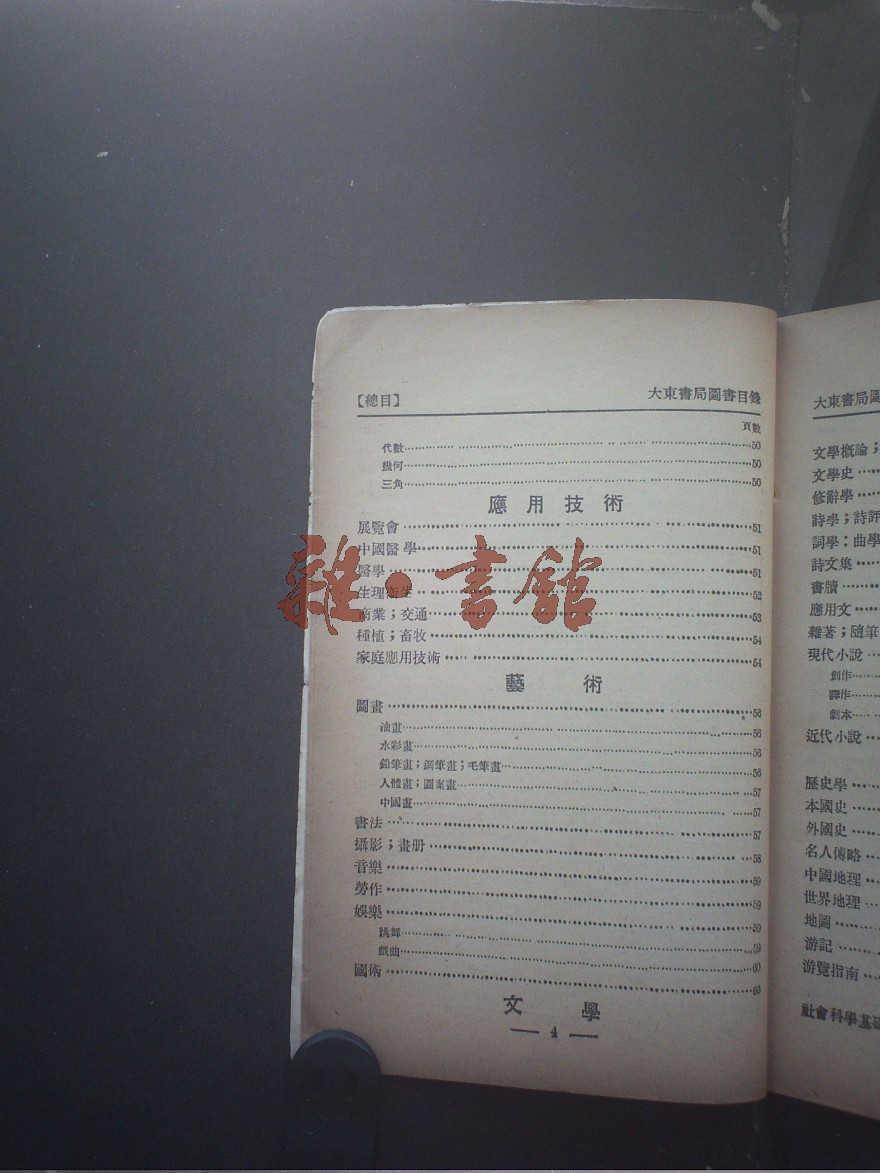 【總目】 大東書局圖書目錄
頁數
代數 50
幾何 50
三角 50
應用技術
展覽會 51
中國醫學 51
醫學 51
生理衛生 52
商業；交通 53
種植；畜牧 54
家庭應用技術 54
藝術
圖畫 56
油畫 56
水彩畫 56
鉛筆畫；鋼筆畫；毛筆畫 56
人體畫；圖案畫 57
中國畫 57
書法 57
攝影；畫册 58
音樂 59
勞作 59
娛樂 59
跳舞 59
戲曲 60
國術 60
文學
4
雜·書館
大東書局圖
文學概論；
文學史
修辭學
詩學；詩評
詞學；曲學
詩文集
書牘
應用文
雜著；隨筆
現代小說
創作
譯作
劇本
近代小說
歷史學
本國史
外國史
名人傳略
中國地理
世界地理
地圖
游記
游覽指南
社會科學基